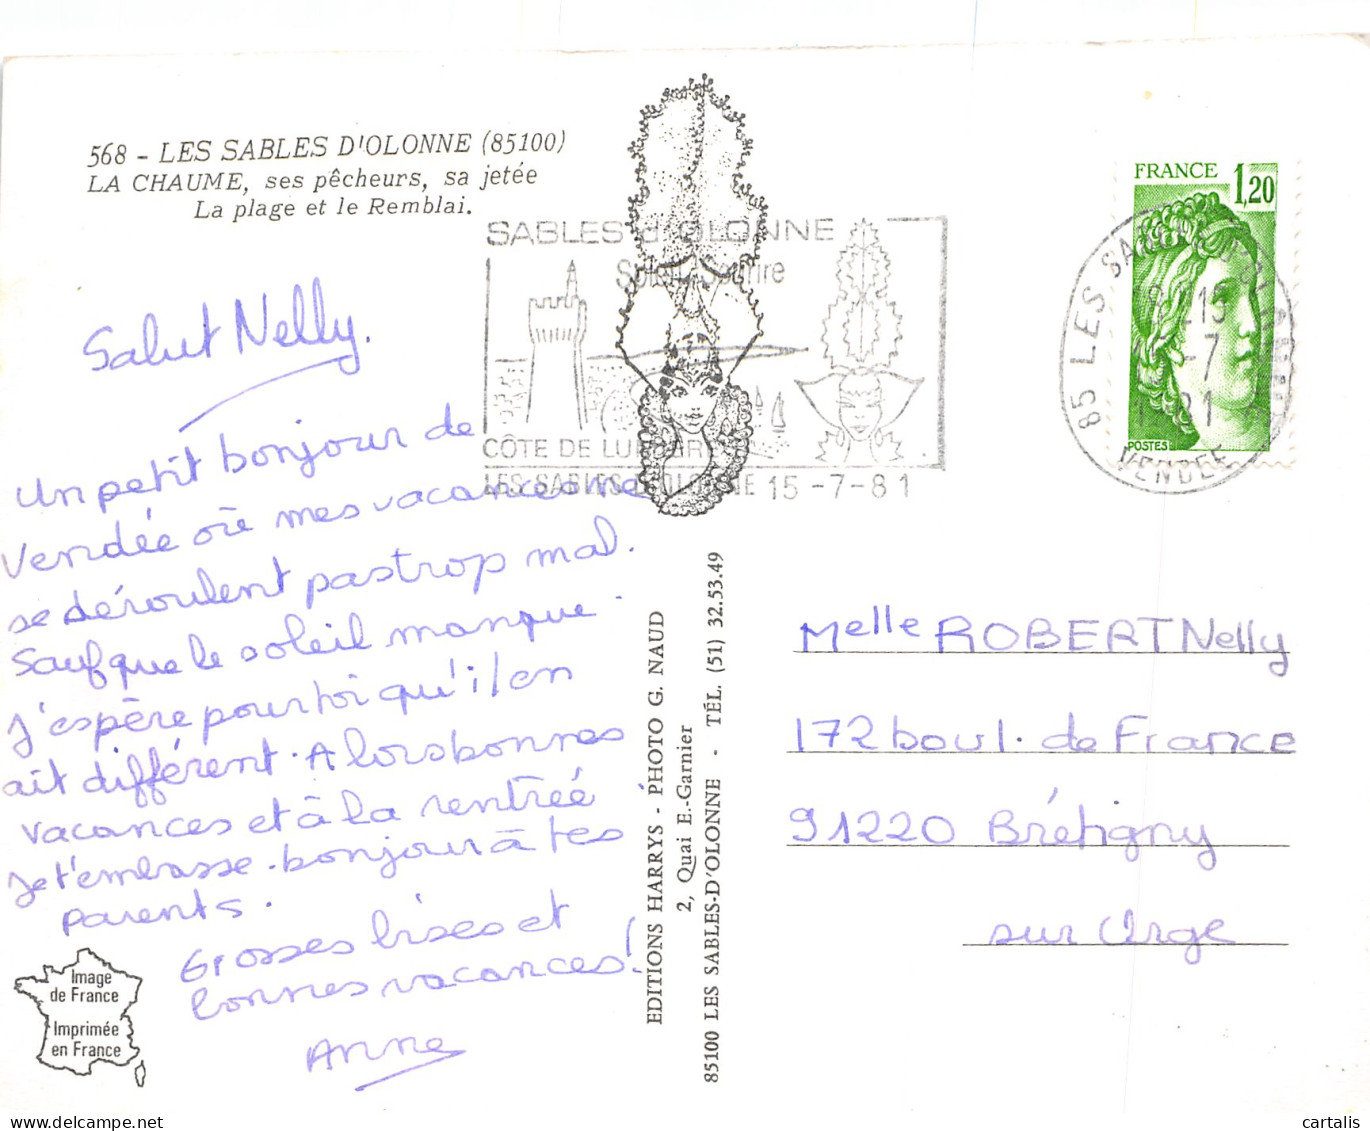 568 - LES SABLES D'OLONNE (85100)
LA CHAUME, ses pêcheurs, sa jetée
La plage et le Remblai.
SABLES d'OLONNE
CÔTE DE LUMIERE
LES SABLES D'OLONNE 15-7-81
FRANCE 1,20
POSTES
85 LES SABLES
-7
VENDEE
Salut Nelly.
Un petit bonjour de
Vendée où mes vacances ne
se déroulent pas trop mal.
Sauf que le soleil manque.
J'espère pour toi qu'il en
ait différent. Alors bonnes
vacances et à la rentrée
je t'embrasse. bonjour à tes
parents.
Grosses bises et
bonnes vacances!
Anne
Image
de France
Imprimée
en France
EDITIONS HARRYS - PHOTO G. NAUD
2, Quai E.-Garnier
85100 LES SABLES-D'OLONNE - TÉL. (51) 32.53.49
Melle ROBERT Nelly
172 boul. de France
91220 Brétigny
sur Orge
cartalis
delcampe.net